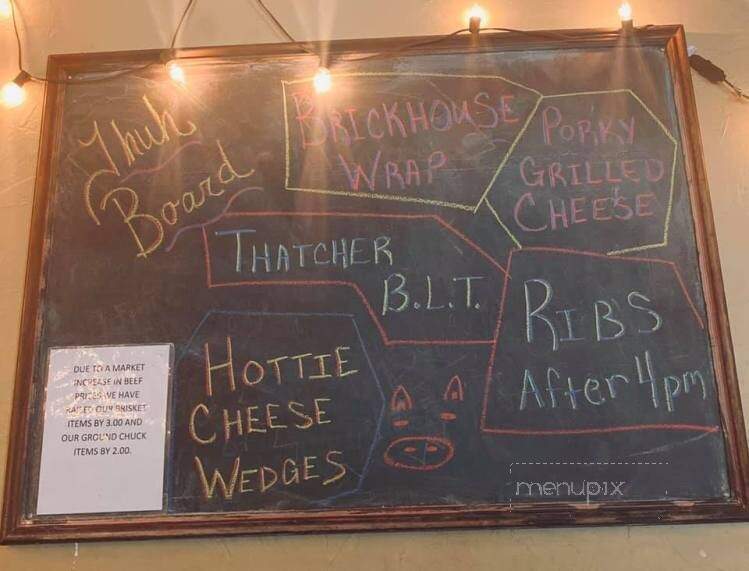 Thuh
Board
BRICKHOUSE
WRAP
PORKY
GRILLED
CHEESE
THATCHER
B.L.T.
RIBS
After 4pm
HOTTIE
CHEESE
WEDGES
DUE TO A MARKET
INCREASE IN BEEF
PRICES WE HAVE
RAISED OUR BRISKET
ITEMS BY 3.00 AND
OUR GROUND CHUCK
ITEMS BY 2.00.
menupix